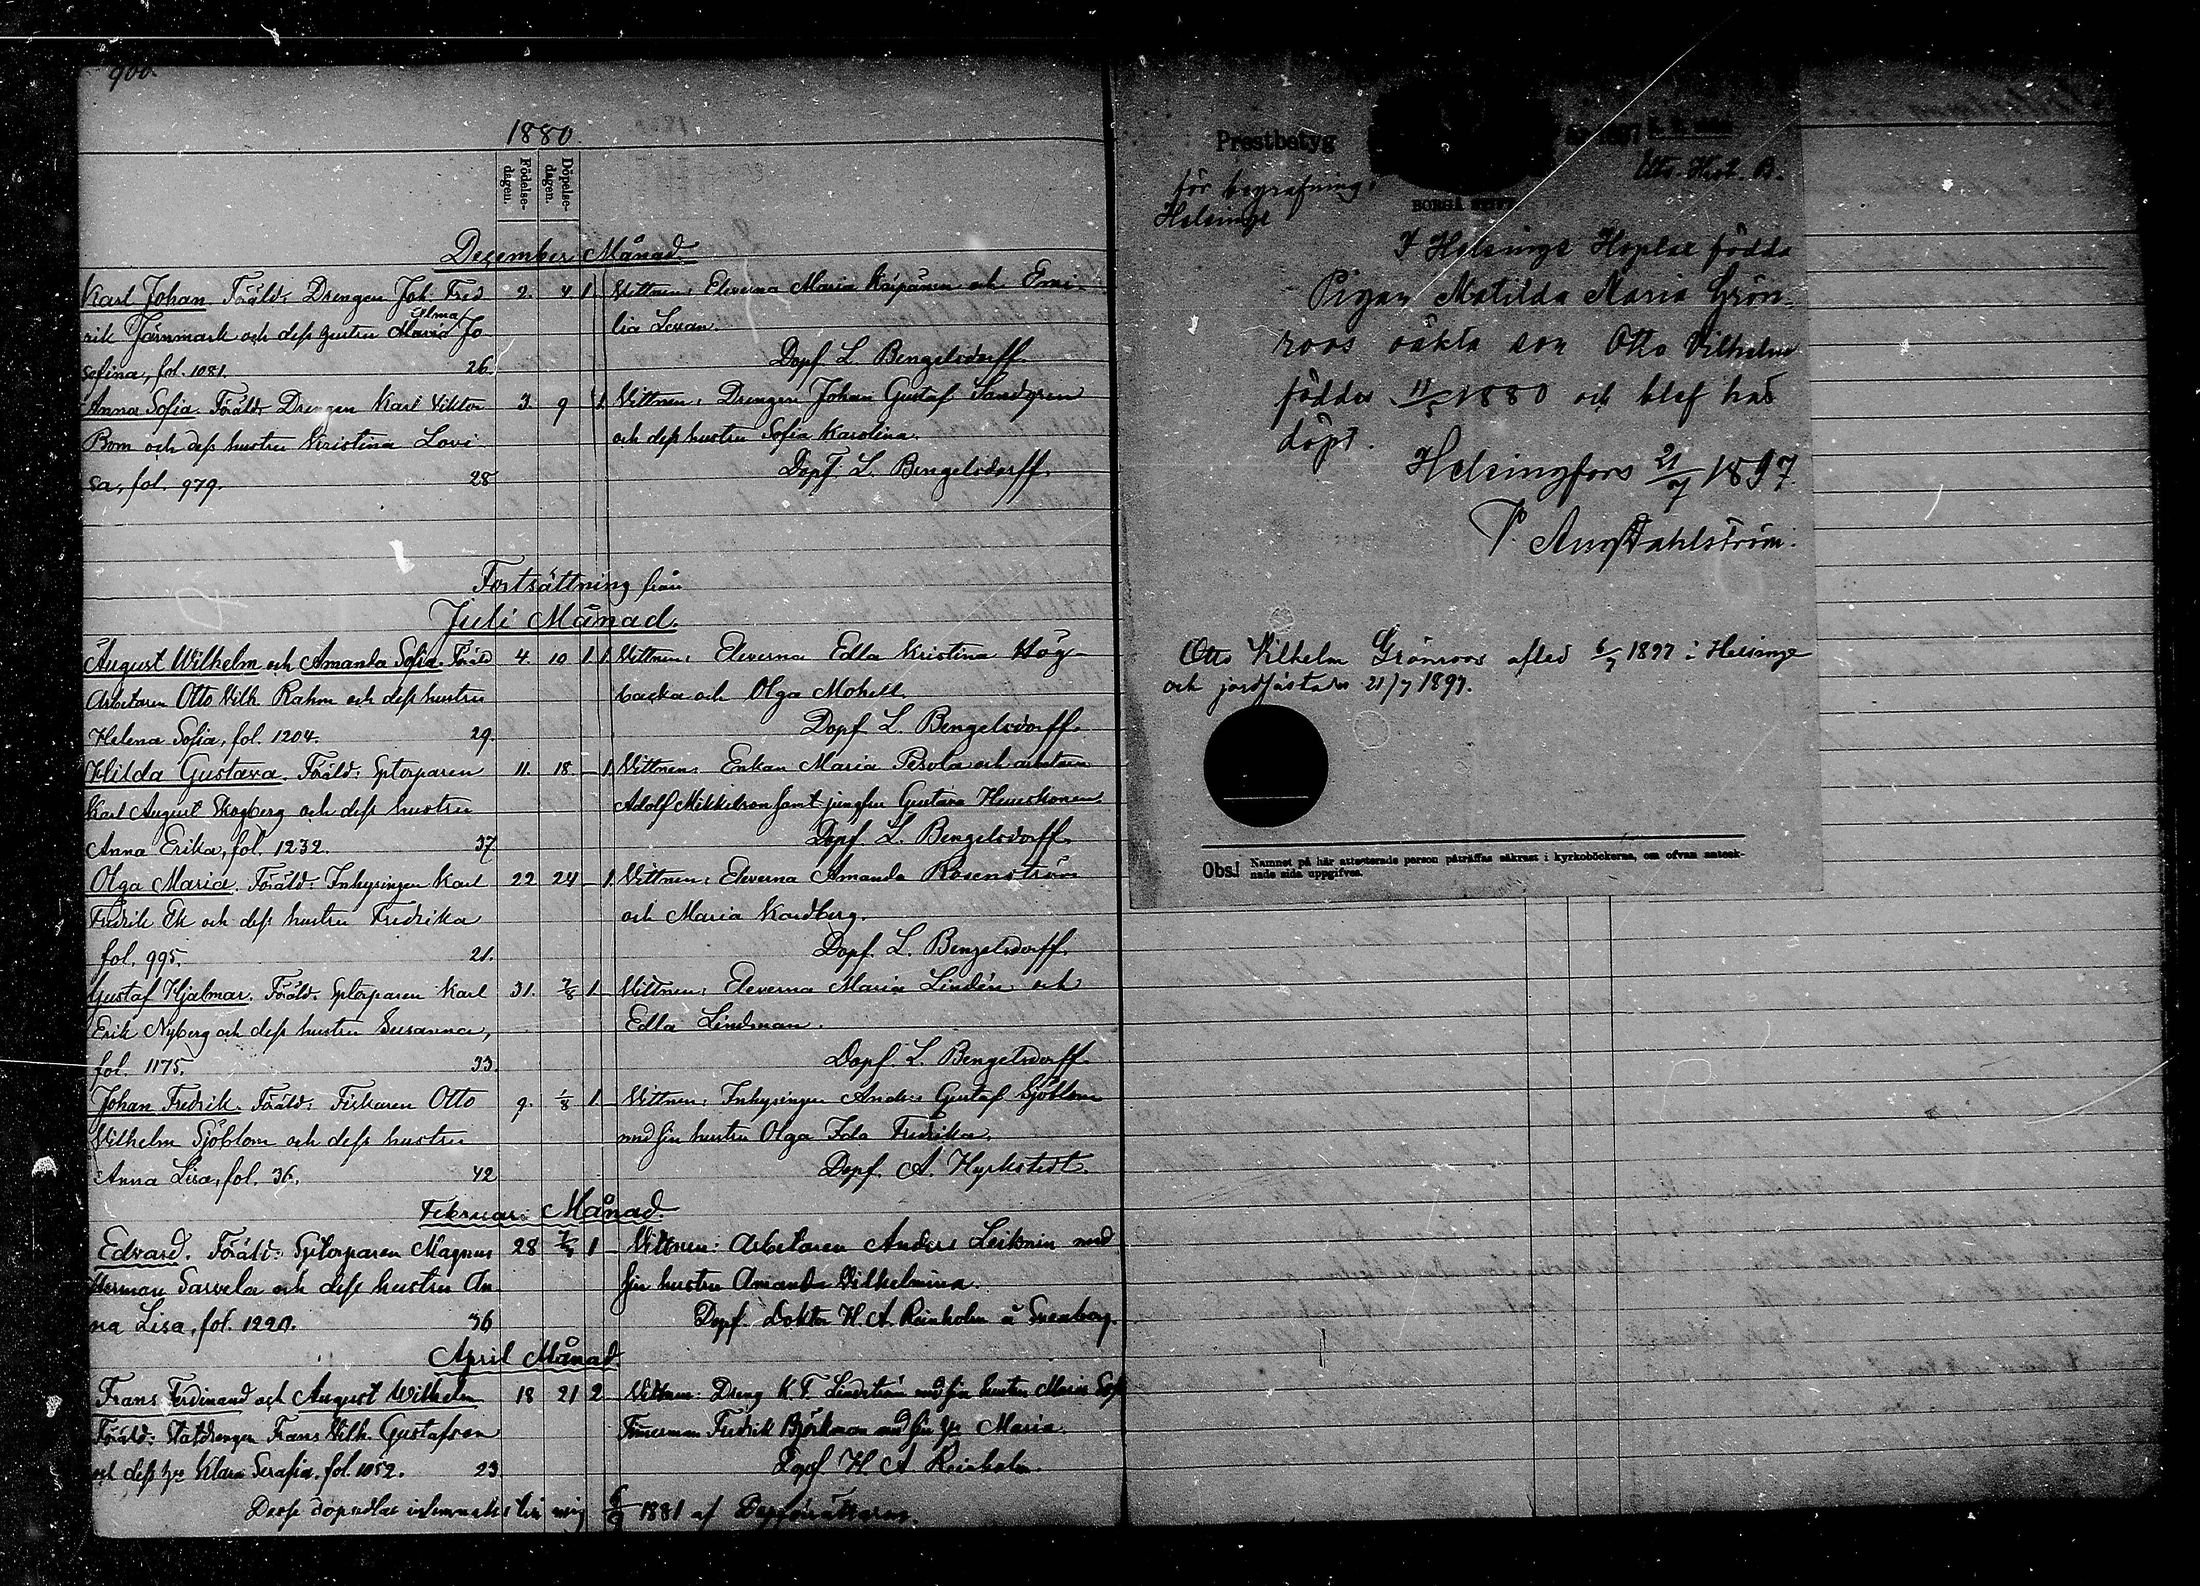 900.
1880.
Födelse-
dagen.
Döpelse-
dagen.
December Månad
Karl Johan. Föräld: Drengen Joh. Fred 2. 4 1. Vittnen: Eleverna Maria Kaipänen och Emi-
Elma
rik Järnmark och dess hustru Maria Jo lia Levan.
sefina, fol. 1081. 26. Dopf. L. Bengelsdorff.
Anna Sofia. Föräld: Drengen Karl Viktor 3. 9 1. Vittnen: Drengen Johan Gustaf Sandgren
Bom och dess hustru Kristina Lovi och dess hustru Sofia Karolina.
sa, fol. 979. 28 Dopf. L. Bengelsdorff.
Fortsättning från
Juli Månad.
August Wilhelm och Amanda Sofia. Föräld 4. 10 1 1 Vittnen: Eleverna Edla Kristina Hög-
Arbetaren Otto Vilh. Rahm och dess hustru backa och Olga Mohell.
Helena Sofia, fol. 1204. 29. Dopf. L. Bengelsdorff.
Hilda Gustava. Föräld: Sptorparen 11. 18 – 1. Vittnen: Enkan Maria Pesola och arbetaren
Karl August Skogberg och dess hustru Adolf Mikkelson samt jungfru Gustava
Anna Erika, fol. 1232. 37 Dopf. L. Bengelsdorff.
Olga Maria. Föräld: Inhysingen Karl 22 24 – 1. Vittnen: Eleverna Amanda Rosenström
Fredrik Ek och dess hustru Fredrika och Maria Kardberg.
fol. 995. 21. Dopf. L. Bengelsdorff.
Gustaf Hjalmar. Föräld: Sptorparen Karl 31. 7/8 1 – Vittnen: Eleverna Maria Lindén och
Erik Nyberg och dess hustru Susanna, Edla Lindman.
fol. 1175. 33. Dopf. L. Bengelsdorff.
Johan Fredrik. Föräld: Fiskaren Otto 9. 1/8 1 – Vittnen: Inhysingen Anders Gustaf Sjöblom
Vilhelm Sjöblom och dess hustru med sin hustru Olga Ida Fredrika.
Anna Lisa, fol. 36. 42 Dopf. A. Hyrkstedt.
Februari Månad.
Edvard. Föräld: Sptorparen Magnus 28 1 – Vittnen: Arbetaren Anders med
Herman Sarvela och dess hustru An sin hustru Amanda Vilhelmina.
na Lisa, fol. 1220. 36 Dopf. Doktor H. A. Reinholm å Sveaborg.
April Månad.
Frans Ferdinand och August Wilhelm 18 21 2 – Vittnen: Dreng K. F. Lindström med sin hustru Maria Sof.
Föräld: Statdrengen Frans Vilh. Gustafsson Timmerman Fredrik Björkman med sin hu Maria.
och dess hu Klara Serafia. fol. 1052. 23 Dopf. H. A. Reinholm.
Desse dopsedlar inlemnades till mig 1881 af Dopförrättaren.
Prestbetyg
Otto. Hist. B.
för begrafning i
Helsinge
BORGÅ STIFT
I Helsinge Hoplax födda
Pigan Matilda Maria Grön-
roos oäkta son Otto Vilhelm
föddes 11/5 1880 och blef här
döpt.
Helsingfors 21/7 1897
P. Aug Dahlström.
Otto Vilhelm Grönroos afled 6/7 1897 i Helsinge
och jordfästades 21/7 1897.
Obs.! Namnet på här attesterade person påträffas säkrast i kyrkoböckerna, om ofvan anteck-
nade sida uppgifves.